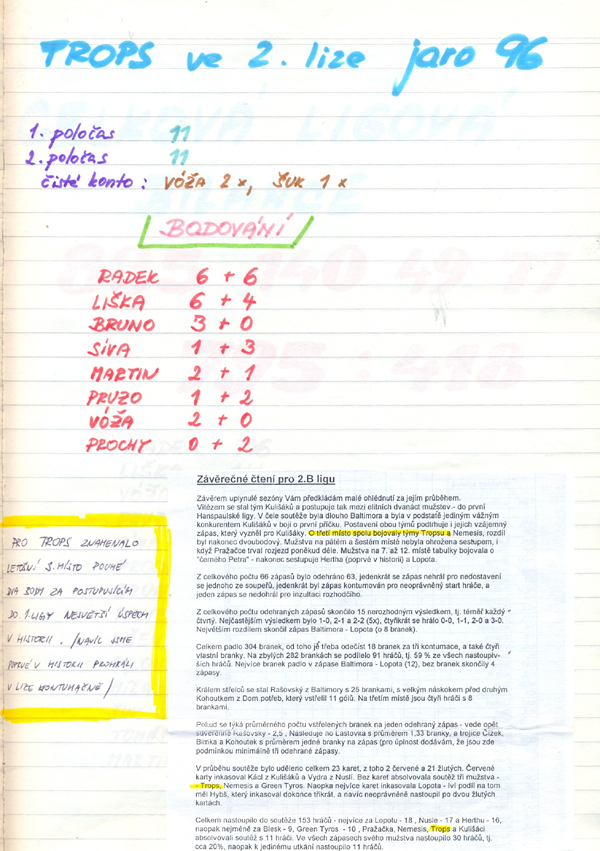 TROPS ve 2. lize jaro 96
1. poločas 11
2. poločas 11
čisté konto : VÓŽA 2 x, ŠUK 1 x
BODOVÁNÍ
RADEK 6 + 6
LIŠKA 6 + 4
BRUNO 3 + 0
SÍVA 1 + 3
MARTIN 2 + 1
PRUZO 1 + 2
VÓŽA 2 + 0
PROCHY 0 + 2
PRO TROPS ZNAMENALO
LETOŠNÍ 3. MÍSTO POUHÉ
DVA BODY ZA POSTUPUJÍCÍM
DO 1. LIGY NEJVĚTŠÍ ÚSPĚCH
V HISTORII. /NAVÍC JSME
POPRVÉ V HISTORII PROHRÁLI
V LIZE KONTUMAČNĚ/
Závěrečné čtení pro 2.B ligu
Závěrem uplynulé sezóny Vám předkládám malé ohlédnutí za jejím průběhem.
Vítězem se stal tým Kulišáků a postupuje tak mezi elitních dvanáct mužstev - do první
Hanspaulské ligy. V čele soutěže byla dlouho Baltimora a byla v podstatě jediným vážným
konkurentem Kulišáků v boji o první příčku. Postavení obou týmů podtrhuje i jejich vzájemný
zápas, který vyzněl pro Kulišáky. O třetí místo spolu bojovaly týmy Tropsu a Nemesis, rozdíl
byl nakonec dvoubodový. Mužstva na pátém a šestém místě nebyla ohrožena sestupem, i
když Pražačka trval rozjezd poněkud déle. Mužstva na 7. až 12. místě tabulky bojovala o
"černého Petra" - nakonec sestupuje Hertha (poprvé v historii) a Lopota.
Z celkového počtu 66 zápasů bylo odehráno 63, jedenkrát se zápas nehrál pro nedostavení
se jednoho ze soupeřů, jedenkrát byl zápas kontumován pro neoprávněný start hráče, a
jeden zápas se nedohrál pro inzultaci rozhodčího.
Z celkového počtu odehraných zápasů skončilo 15 nerozhodným výsledkem, tj. téměř každý
čtvrtý. Nejčastějším výsledkem bylo 1-0, 2-1 a 2-2 (5x), čtyřikrát se hrálo 0-0, 1-1, 2-0 a 3-0.
Největším rozdílem skončil zápas Baltimora - Lopota (o 8 branek).
Celkem padlo 304 branek, od toho je třeba odečíst 18 branek za tři kontumace, a také čtyři
vlastní branky. Na zbylých 282 brankách se podílelo 91 hráčů, tj. 59 % ze všech nastoupiv-
ších hráčů. Nejvíce branek padlo v zápase Baltimora - Lopota (12), bez branek skončily 4
zápasy.
Králem střelců se stal Rašovský z Baltimory s 25 brankami, s velkým náskokem před druhým
Kohoutkem z Dom.potřeb, který vstřelil 11 gólů. Na třetím místě jsou čtyři hráči s 8
brankami.
Pokud se týká průměrného počtu vstřelených branek na jeden odehraný zápas - vede opět
suverénně Rašovský - 2,5 . Následuje ho Laštovla s průměrem 1,33 branky, a trojice Čížek,
Bimka a Kohoutek s průměrem jedné branky na zápas (pro úplnost dodávám, že jsou zde
podmínkou minimálně tři odehrané zápasy.
V průběhu soutěže bylo uděleno celkem 23 karet, z toho 2 červené a 21 žlutých. Červené
karty inkasoval Kácl z Kulišáků a Vydra z Nuslí. Bez karet absolvovala soutěž tři mužstva -
- Trops, Nemesis a Green Tyros. Naopka nejvíce karet inkasovala Lopota - lví podíl na tom
měl Hybš, který inkasoval dokonce třikrát, a navíc neoprávněně nastoupil po dvou žlutých
kartách.
Celkem nastoupilo do soutěže 153 hráčů - nejvíce za Lopotu - 18 , Nusle - 17 a Herthu - 16,
naopak nejméně za Blesk - 9, Green Tyros - 10 , Pražačka, Nemesis, Trops a Kulišáci
absolvovali soutěž s 11 hráči. Ve všech zápasech svého mužstva nastoupilo 30 hráčů, tj.
cca 20%, naopak k jedinému utkání nastoupilo 11 hráčů.